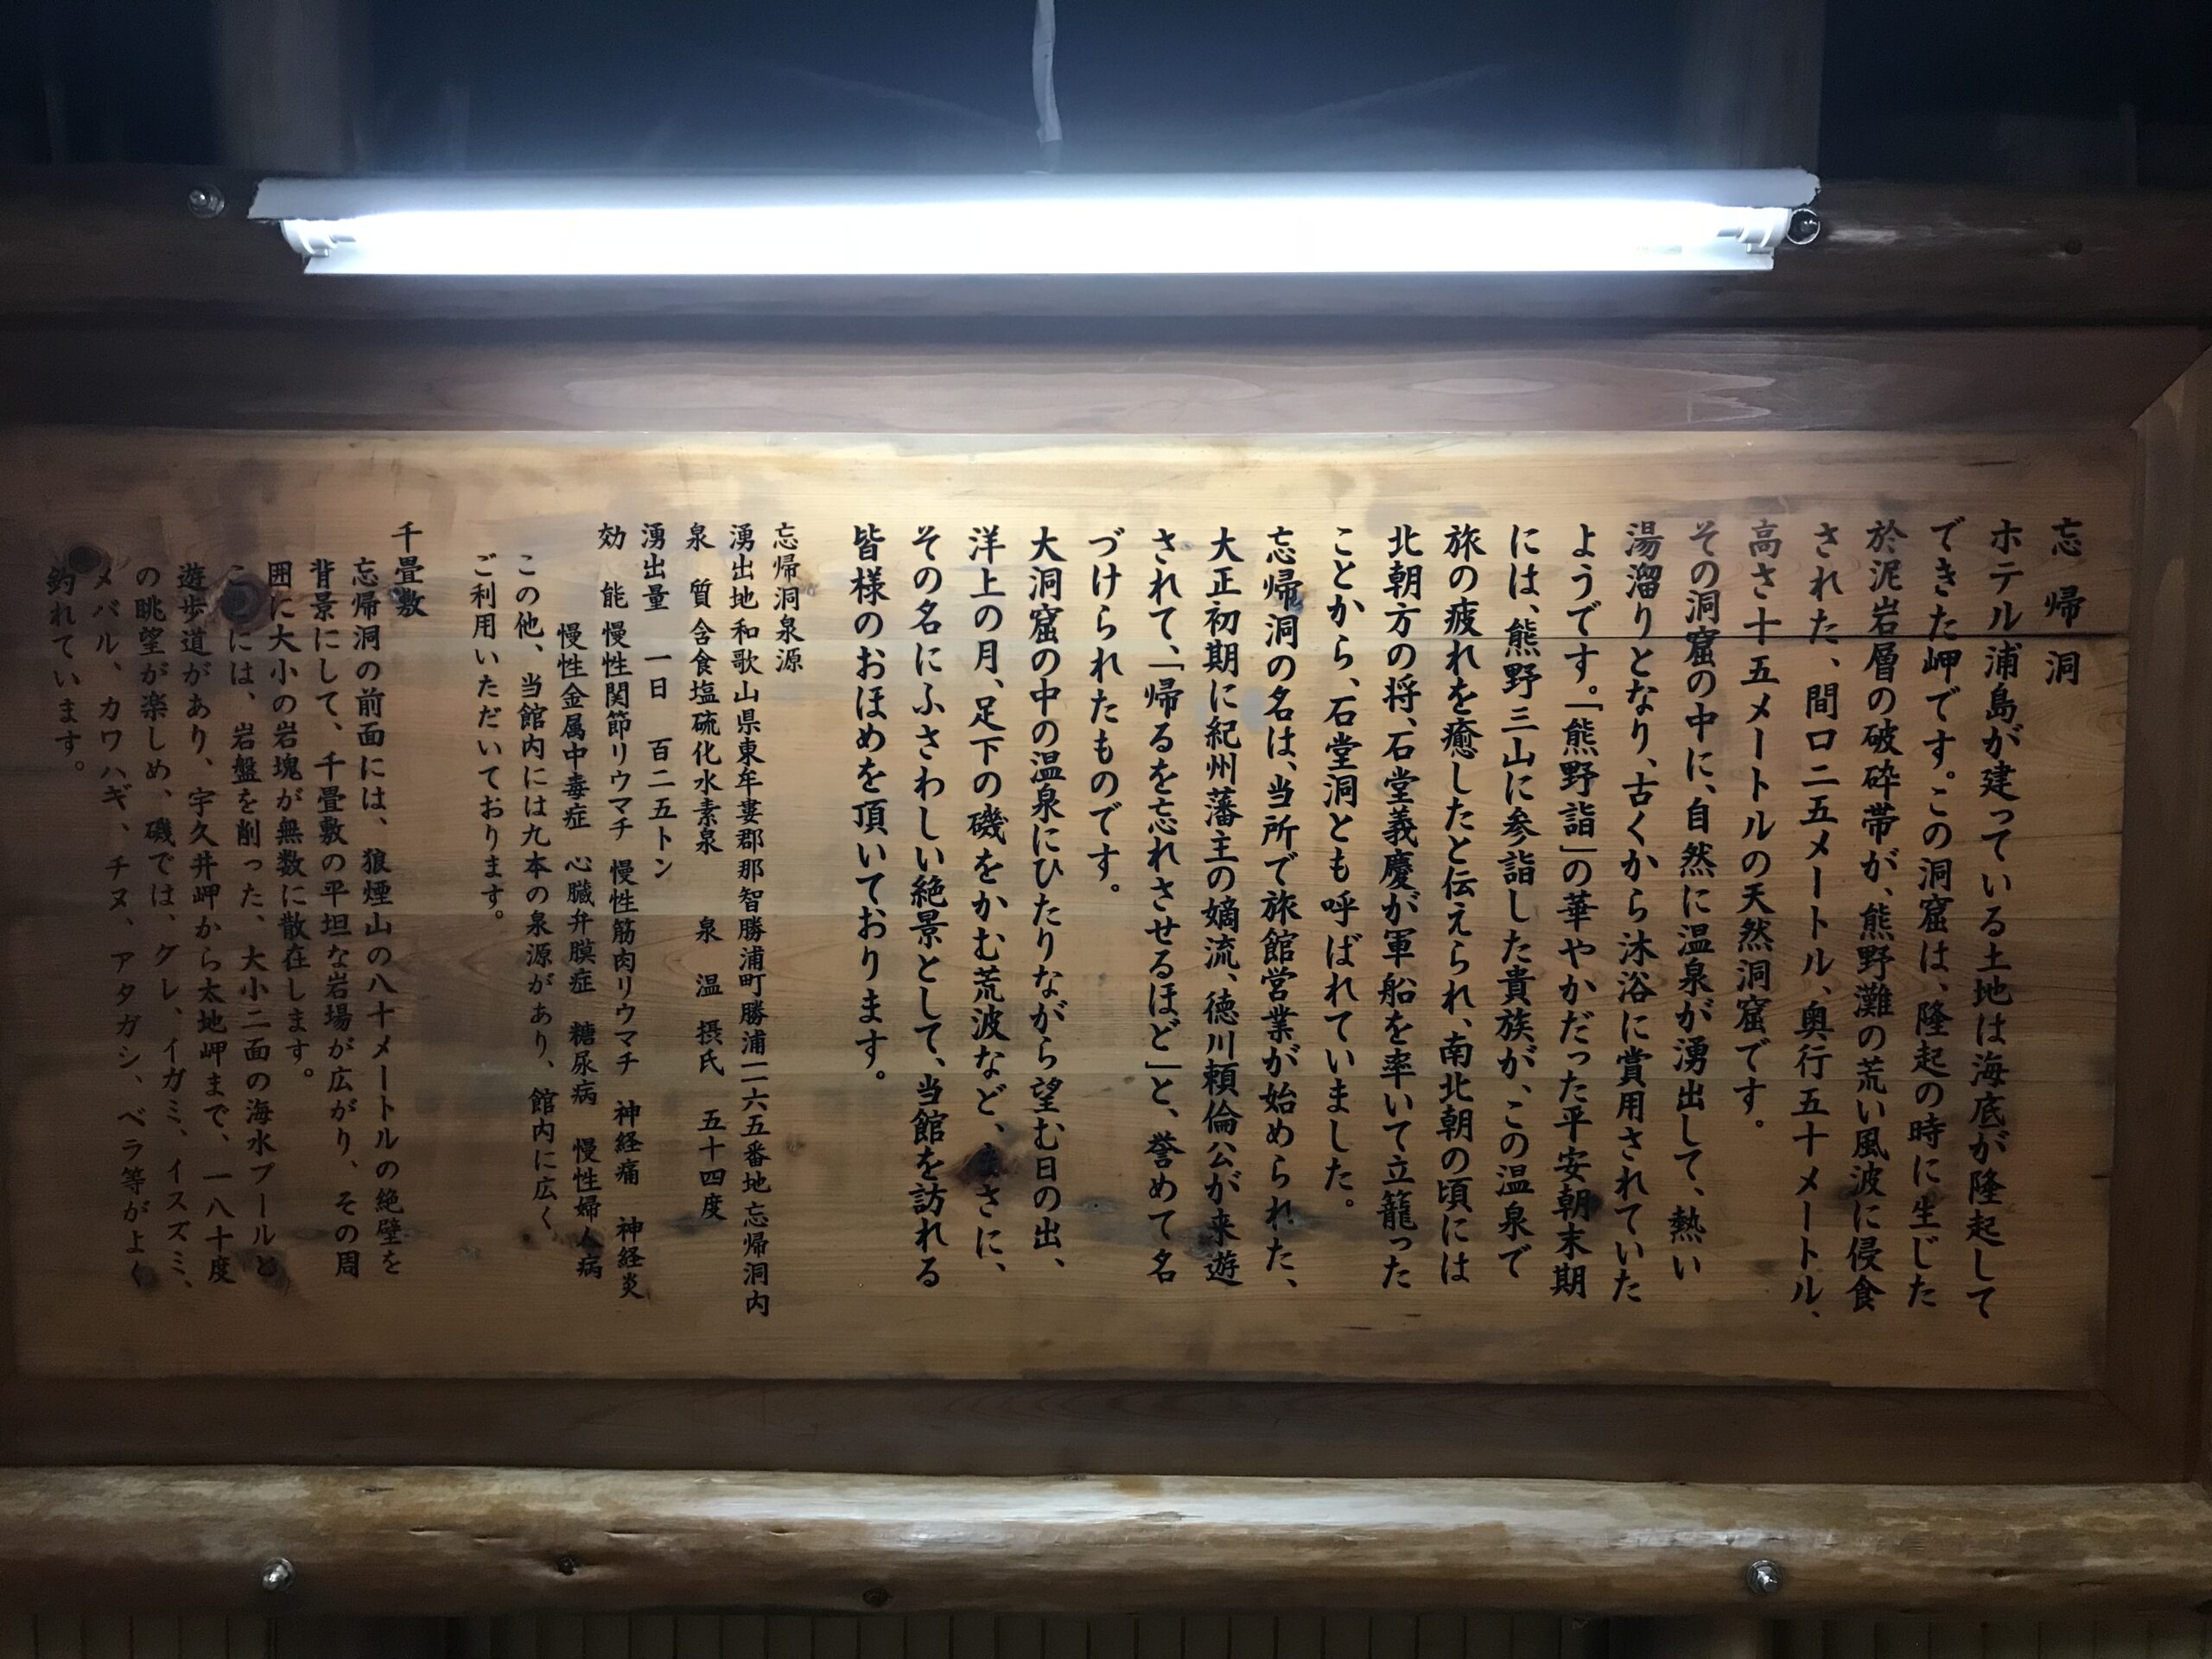 忘帰洞
ホテル浦島が建っている土地は海底が隆起して
できた岬です。この洞窟は、隆起の時に生じた
於泥岩層の破砕帯が、熊野灘の荒い風波に侵食
された、間口二五メートル、奥行五十メートル、
高さ十五メートルの天然洞窟です。
その洞窟の中に、自然に温泉が湧出して、熱い
湯溜りとなり、古くから沐浴に賞用されていた
ようです。「熊野詣」の華やかだった平安朝末期
には、熊野三山に参詣した貴族が、この温泉で
旅の疲れを癒したと伝えられ、南北朝の頃には
北朝方の将、石堂義慶が軍船を率いて立籠った
ことから、石堂洞とも呼ばれていました。
忘帰洞の名は、当所で旅館営業が始められた、
大正初期に紀州藩主の嫡流、徳川頼倫公が来遊
されて、「帰るを忘れさせるほど」と、誉めて名
づけられたものです。
大洞窟の中の温泉にひたりながら望む日の出、
洋上の月、足下の磯をかむ荒波など、まさに、
その名にふさわしい絶景として、当館を訪れる
皆様のおほめを頂いております。
忘帰洞泉源
湧出地 和歌山県東牟婁郡那智勝浦町勝浦二六五番地忘帰洞内
泉 質 含食塩硫化水素泉 泉 温 摂氏 五十四度
湧出量 一日 百二五トン
効 能 慢性関節リウマチ 慢性筋肉リウマチ 神経痛 神経炎
慢性金属中毒症 心臓弁膜症 糖尿病 慢性婦人病
この他、当館内には九本の泉源があり、館内に広く
ご利用いただいております。
千畳敷
忘帰洞の前面には、狼煙山の八十メートルの絶壁を
背景にして、千畳敷の平坦な岩場が広がり、その周
囲に大小の岩塊が無数に散在します。
ここには、岩盤を削った、大小二面の海水プールと
遊歩道があり、宇久井岬から太地岬まで、一八十度
の眺望が楽しめ、磯では、グレ、イガミ、イスズミ、
メバル、カワハギ、チヌ、アタガシ、ベラ等がよく
釣れています。